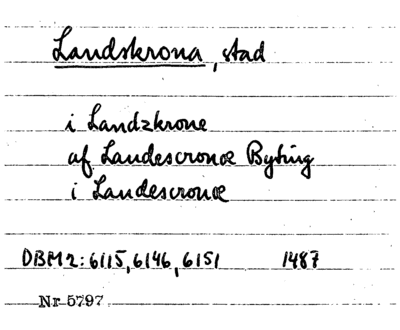 Landskrona, stad
i Landzkrone
af Landescronæ Byting
i Landescronæ
DBM2: 6115, 6146, 6151 1487
Nr 5797